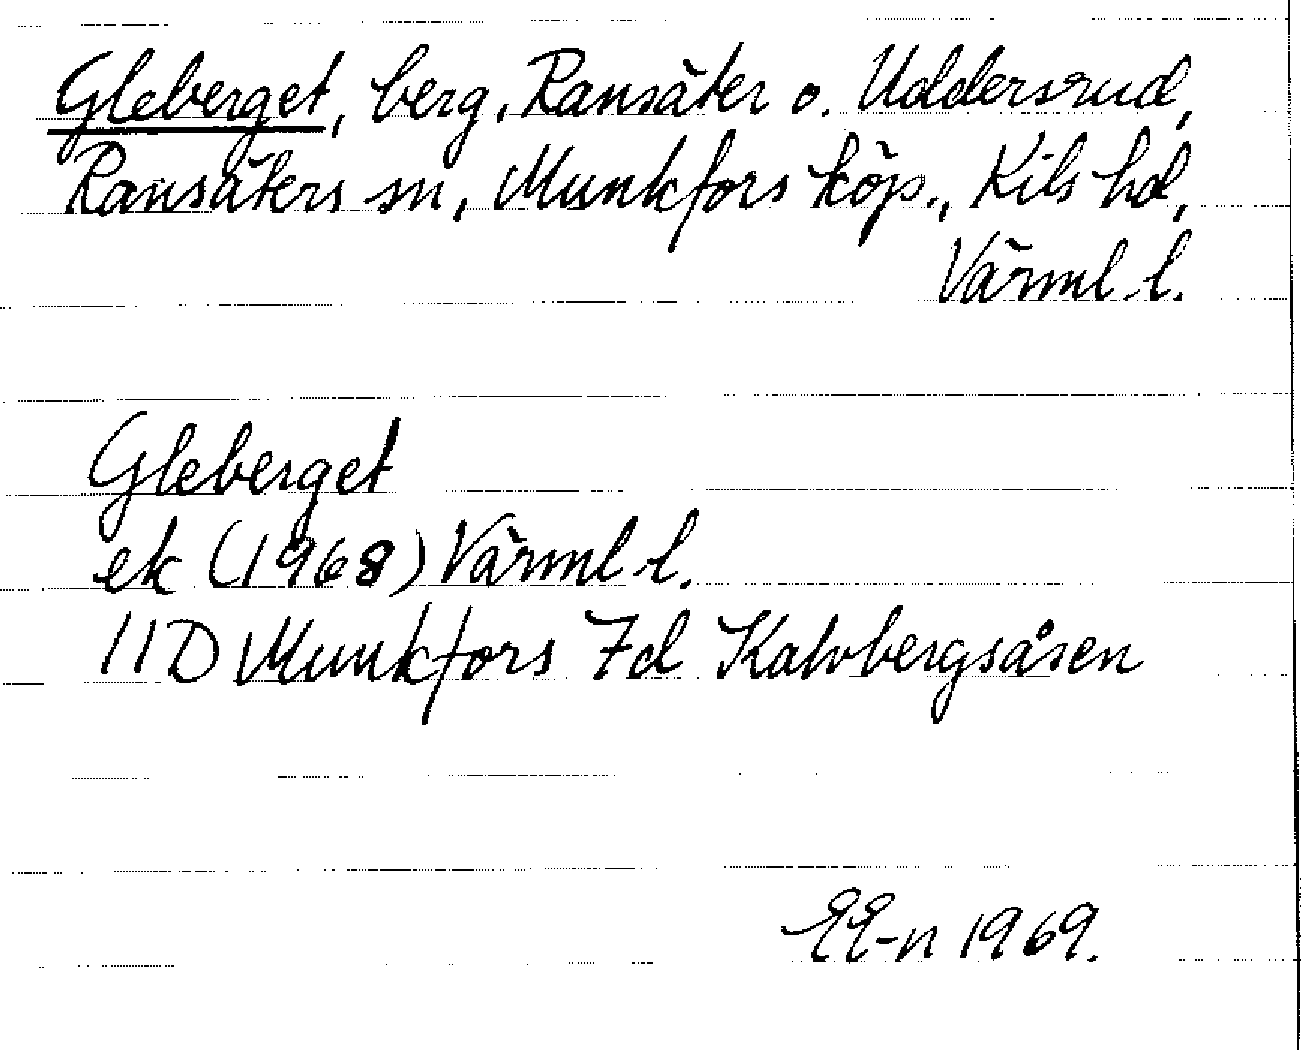 Gleberget, berg, Ransäter o. Uddersrud,
Ransäters sn, Munkfors köp., Kils hd,
Värml. l.
Gleberget
ek (1968) Värml. l.
11D Munkfors 7d Kalvbergsåsen
EE-n 1969.